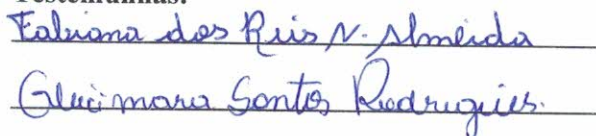 Testemunhas:
Fabiana dos Reis N. Almeida
Gleicimara Santos Rodrigues.